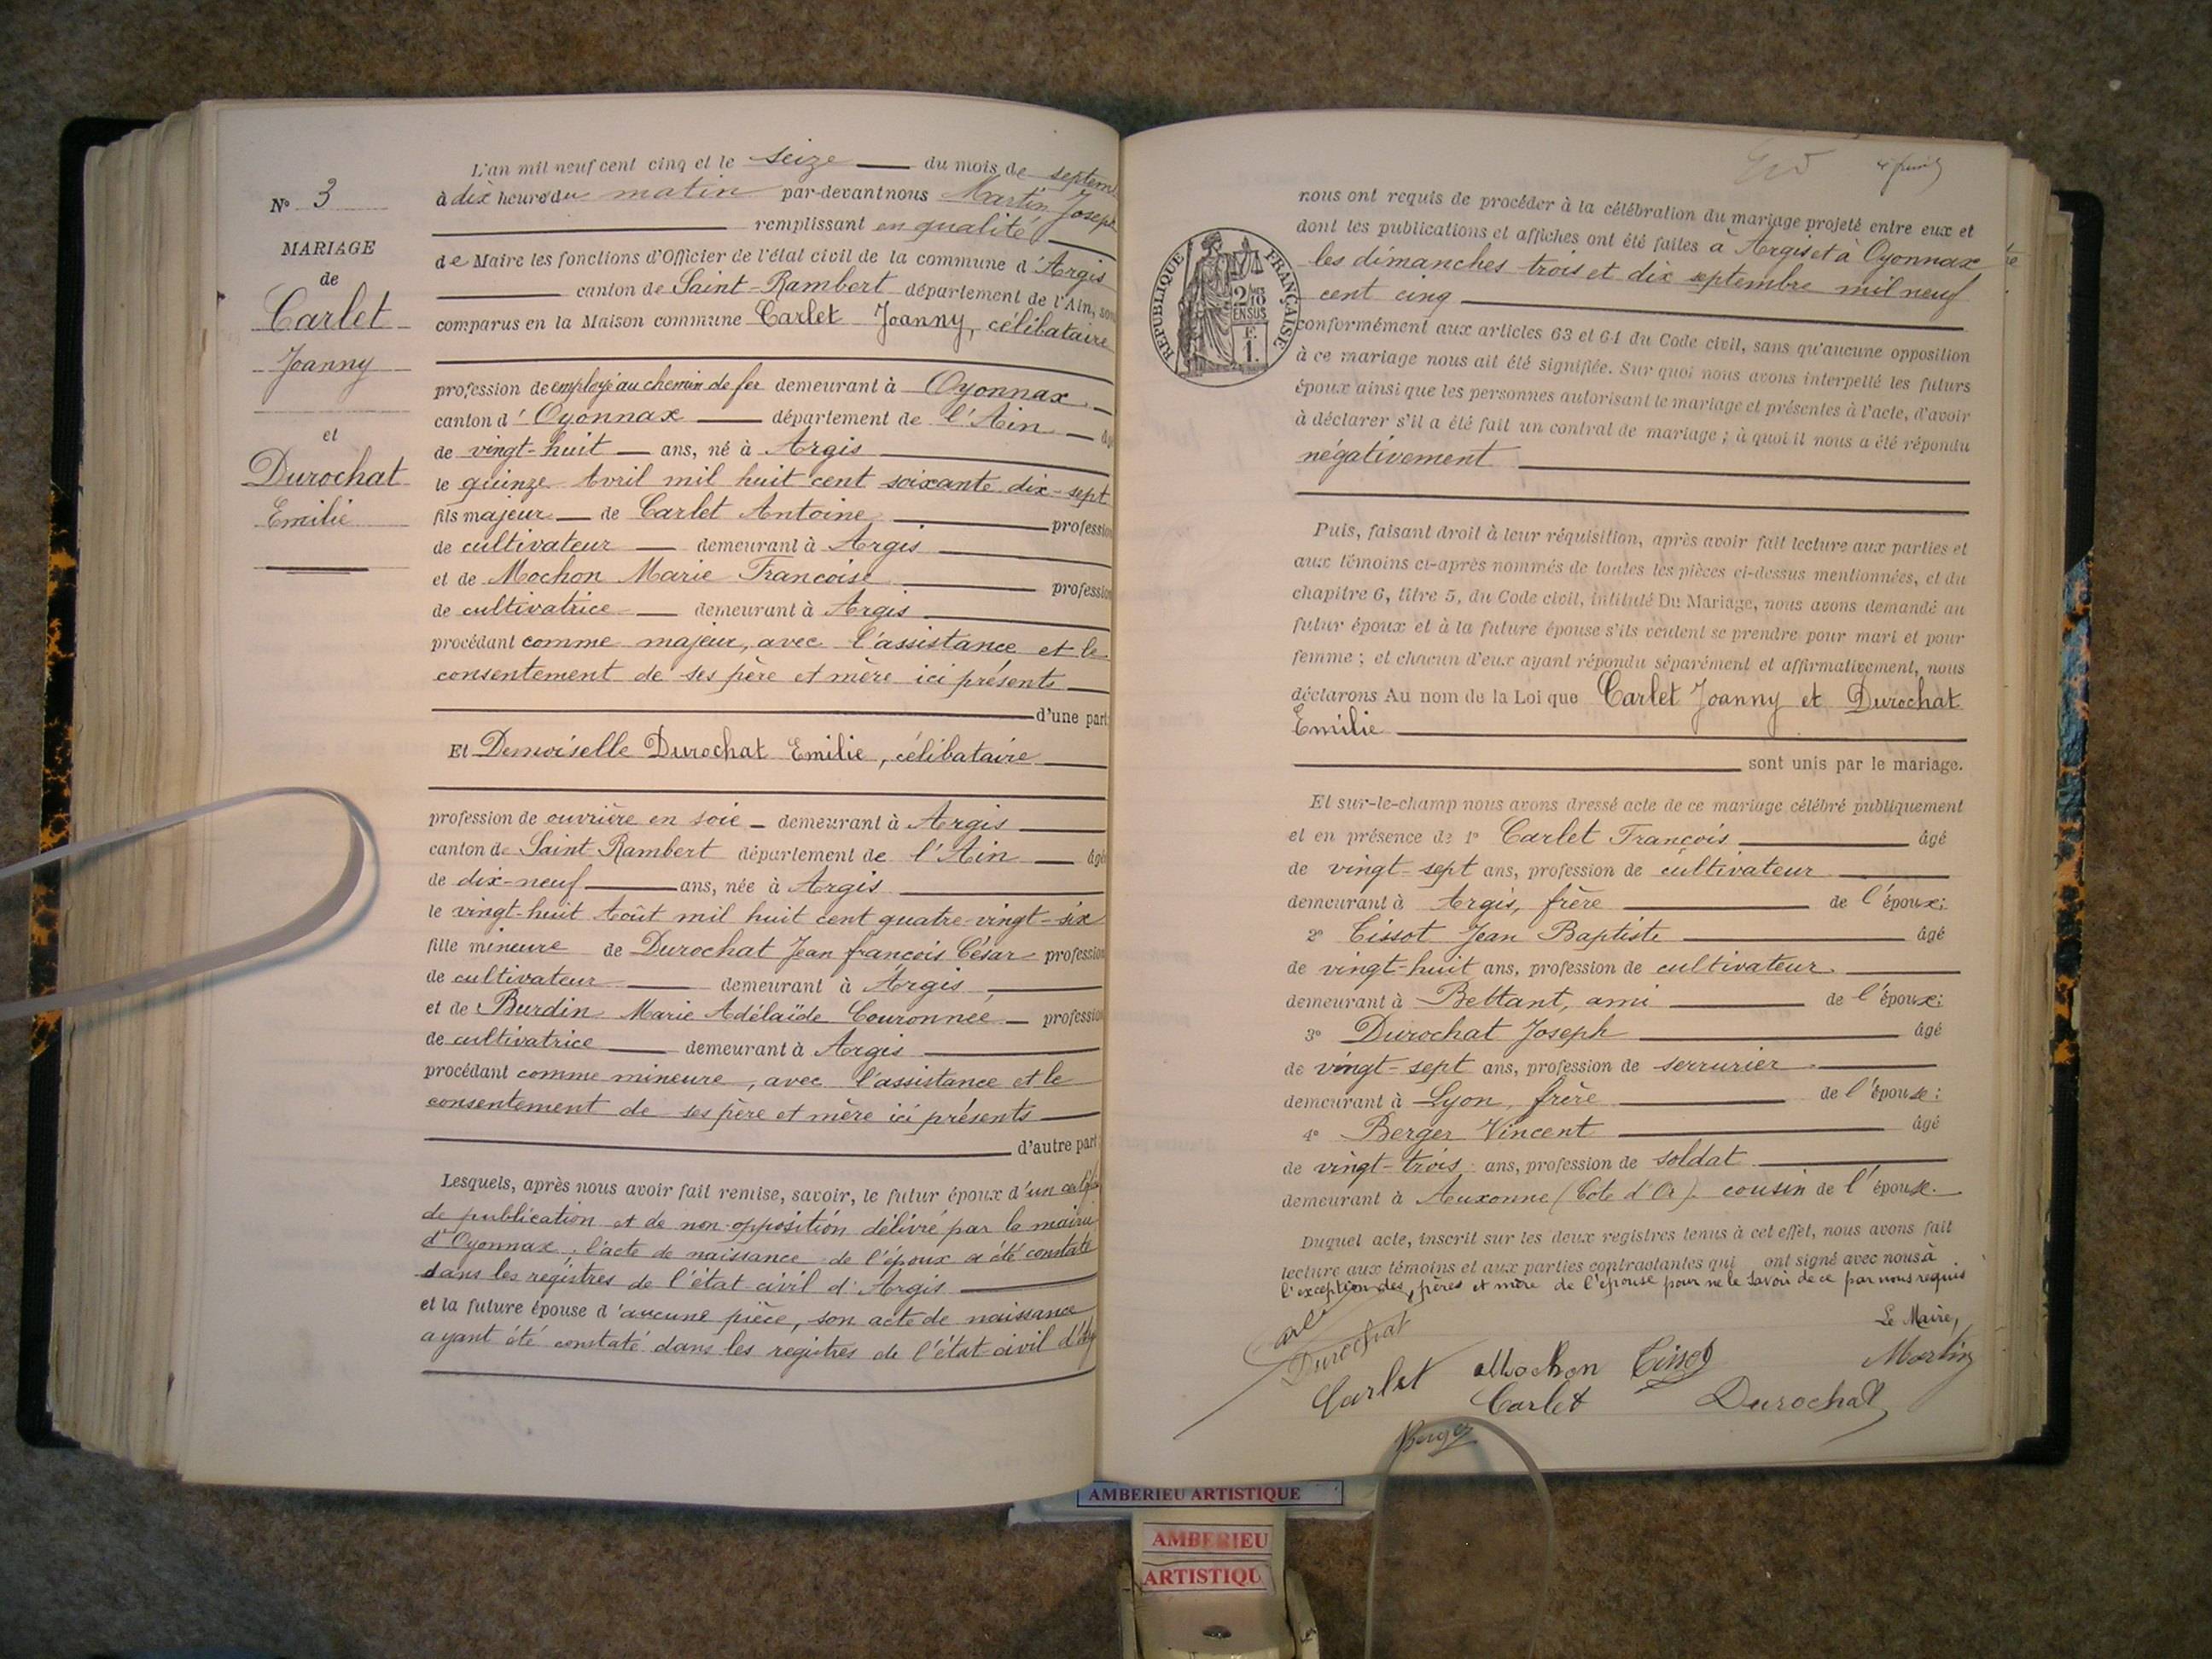 N° 3
MARIAGE
de
Carlet
Joanny
et
Durochat
Emilie
L'an mil neuf cent cinq et le seize du mois de septem
à dix heure du matin par-devant nous Martin Joseph
remplissant en qualité
de Maire les fonctions d'Officier de l'état civil de la commune d'Argis
canton de Saint-Rambert département de l'Ain, son
comparus en la Maison commune Carlet Joanny, célibataire
profession de employé au chemin de fer demeurant à Oyonnax
canton d'Oyonnax département de l'Ain âg
de vingt-huit ans, né à Argis
le quinze Avril mil huit cent soixante dix-sept
fils majeur de Carlet Antoine profession
de cultivateur demeurant à Argis
et de Mochon Marie Francoise profession
de cultivatrice demeurant à Argis
procédant comme majeur, avec l'assistance et le
consentement de ses père et mère ici présents
d'une part
Et Demoiselle Durochat Emilie, célibataire
profession de ouvrière en soie demeurant à Argis
canton de Saint-Rambert département de l'Ain âgé
de dix-neuf ans, née à Argis
le vingt-huit Août mil huit cent quatre-vingt-six
fille mineure de Durochat Jean françois César profession
de cultivateur demeurant à Argis
et de Burdin Marie Adélaïde Couronnée profession
de cultivatrice demeurant à Argis
procédant comme mineure, avec l'assistance et le
consentement de ses père et mère ici présents
d'autre part
Lesquels, après nous avoir fait remise, savoir, le futur époux d'un
de publication et de non-opposition délivré par la mairie
d'Oyonnax, l'acte de naissance de l'époux a été constaté
dans les registres de l'état civil d'Argis
et la future épouse d'aucune pièce, son acte de naissance
ayant été constaté dans les registres de l'état civil
nous ont requis de procéder à la célébration du mariage projeté entre eux et
dont les publications et affiches ont été faites à Argis et à Oyonnax
les dimanches trois et dix septembre mil neuf
cent cinq
RÉPUBLIQUE FRANÇAISE
conformément aux articles 63 et 64 du Code civil, sans qu'aucune opposition
à ce mariage nous ait été signifiée. Sur quoi nous avons interpellé les futurs
époux ainsi que les personnes autorisant le mariage et présentes à l'acte, d'avoir
à déclarer s'il a été fait un contrat de mariage ; à quoi il nous a été répondu
négativement
Puis, faisant droit à leur réquisition, après avoir fait lecture aux parties et
aux témoins ci-après nommés de toutes les pièces ci-dessus mentionnées, et du
chapitre 6, titre 5, du Code civil, intitulé Du Mariage, nous avons demandé au
futur époux et à la future épouse s'ils veulent se prendre pour mari et pour
femme ; et chacun d'eux ayant répondu séparément et affirmativement, nous
déclarons Au nom de la Loi que Carlet Joanny et Durochat
Emilie
sont unis par le mariage.
Et sur-le-champ nous avons dressé acte de ce mariage célébré publiquement
et en présence de 1° Carlet François âgé
de vingt-sept ans, profession de cultivateur
demeurant à Argis, frère de l'époux;
2° Tissot Jean Baptiste âgé
de vingt-huit ans, profession de cultivateur
demeurant à Bettant, ami de l'époux;
3° Durochat Joseph âgé
de vingt-sept ans, profession de serrurier
demeurant à Lyon, frère de l'épouse;
4° Berger Vincent âgé
de vingt-trois ans, profession de soldat
demeurant à Auxonne (Cote d'Or) cousin de l'épouse.
Duquel acte, inscrit sur les deux registres tenus à cet effet, nous avons fait
lecture aux témoins et aux parties contractantes qui ont signé avec nous à
l'exception des pères et mère de l'épouse pour ne le savoir de ce par nous requis
Le Maire,
Carlet
Durochat
Carlet Mochon Tissot Martin
Carlet Durochat
Berger
AMBERIEU ARTISTIQUE
AMBERIEU
ARTISTIQU